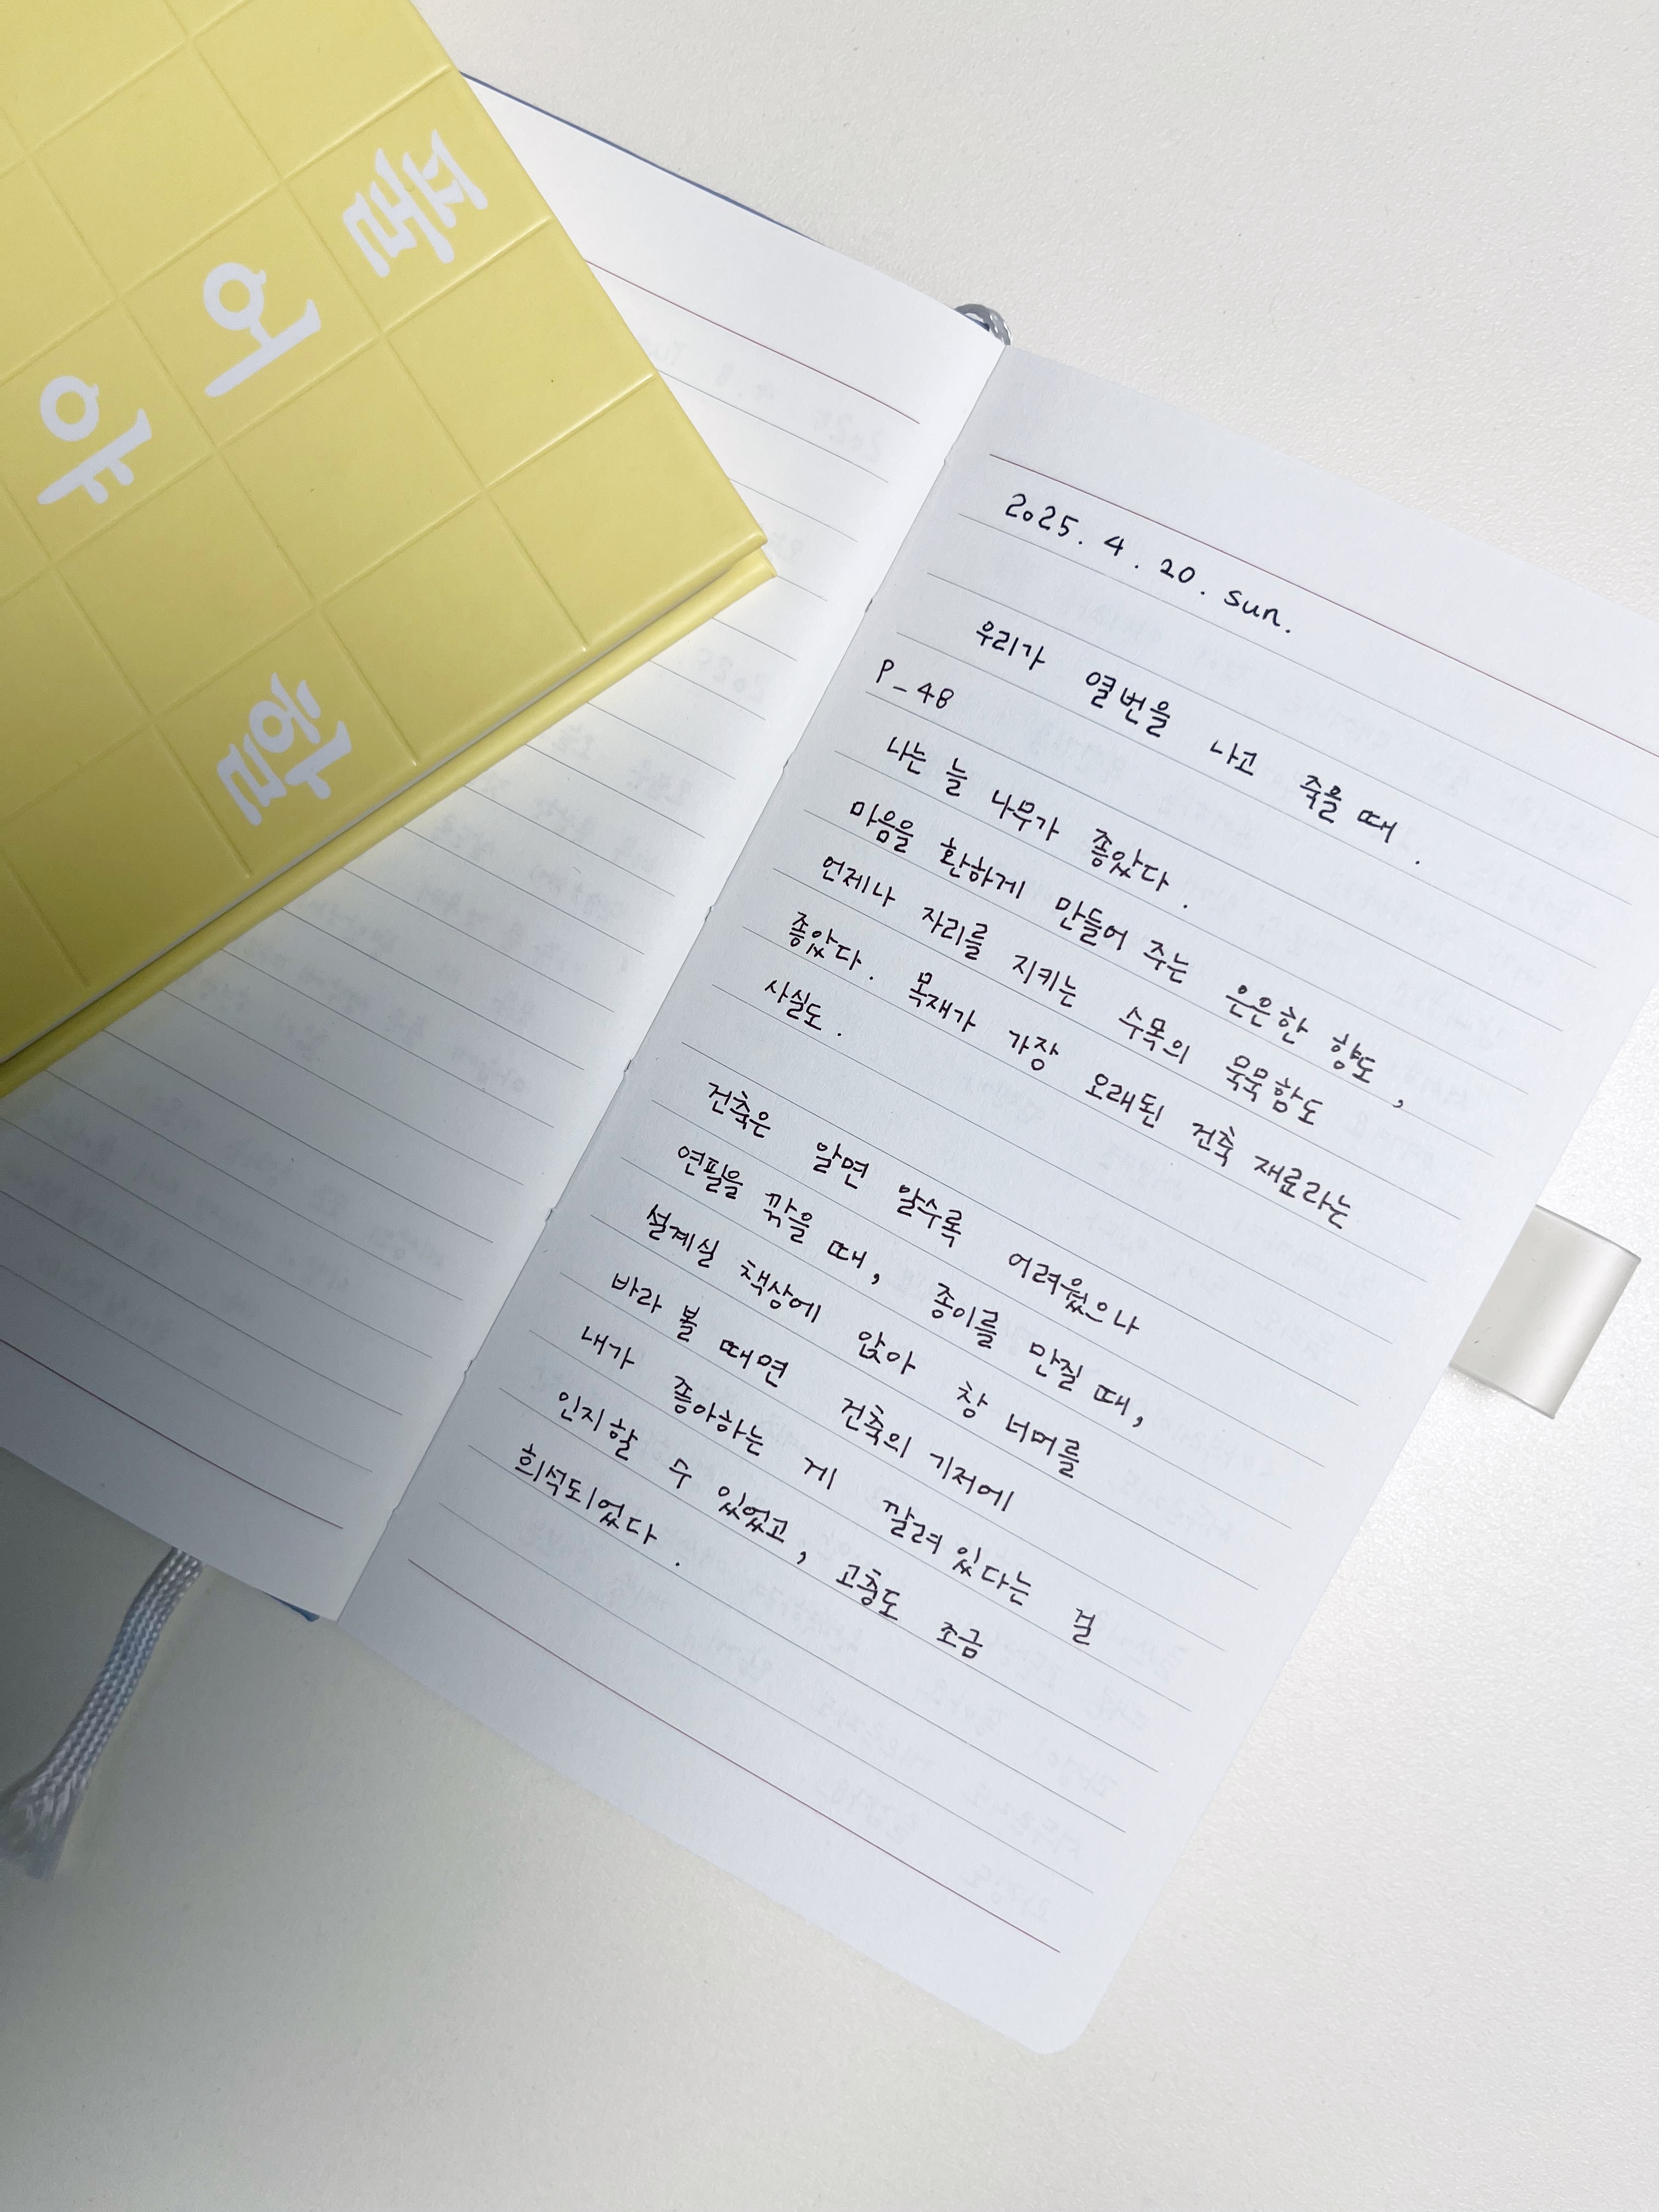 풀
어
야
할
2025. 4. 20. sun.
우리가 열번을 나고 죽을 때.
P_48
나는 늘 나무가 좋았다.
마음을 환하게 만들어 주는 은은한 향도,
언제나 자리를 지키는 수목의 묵묵함도
좋았다. 목재가 가장 오래된 건축 재료라는
사실도.
건축은 알면 알수록 어려웠으나
연필을 깎을 때, 종이를 만질 때,
설계실 책상에 앉아 창 너머를
바라 볼 때면 건축의 기저에
내가 좋아하는 게 깔려 있다는 걸
인지할 수 있었고, 고충도 조금
희석되었다.